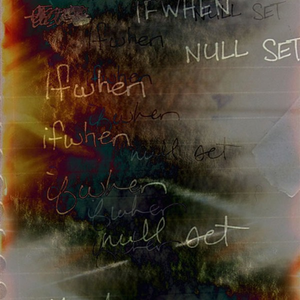 IFWHEN NULL SET
ifwhen
NULL SET
Ifwhen
ifwhen
ifwhen
null set
ifwhen
ifwhen
null set